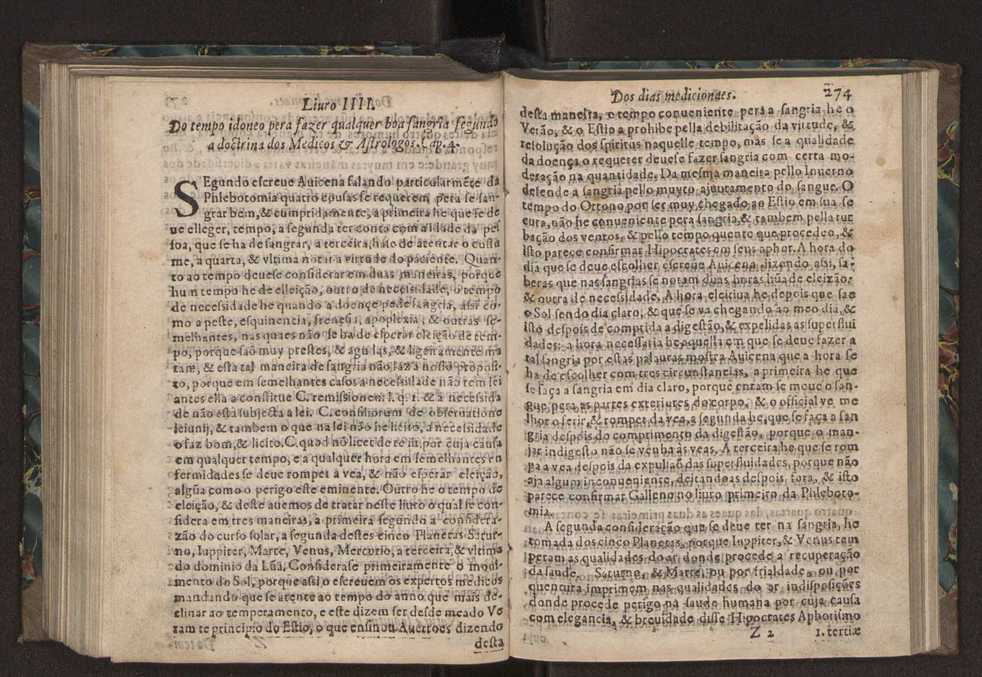 Liuro IIII.
Do tempo idoneo pera fazer qualquer boa sangria segundo
a doctrina dos Medicos & Astrologos. Cap. 4.
SEgundo escreue Auicena falando particularmẽte da
Phlebotomia quatro cousas se requerem pera se san-
grar bem, & cumpridamente, a primeira he que se de
ue elleger, tempo, a segunda ter conta com a idade da pes
soa, que se ha de sangrar, a terceira, hase de atentar o costu
me, a quarta, & vltima notar a virtude do paciente. Quan-
to ao tempo deuese considerar em duas maneiras, porque
hum tempo he de elleição, outro de necesidade, o tempo
de necessidade he quando a doença pede sangria, assi co-
mo a peste, esquinencia, frenesia, apoplexia, & outras se-
melhantes, nas quaes não se ha de esperar eleição de tem-
po, porque saõ muy prestes, & agudas, & ligeiramente ma
tam, & esta tal maneira de sangria não faz a nosso proposi-
to, porque em semelhantes casos a necessidade não tem lei
antes ella a constitue C. remissionem I. q. 1. & a necessida
de não esta subjecta a lei. C. consiliorum de obseruatione
leiunij, & tambem o que na lei não he licito, a necessidade
o faz bom, & licito. C. quod nõ licet de reg. iur. por cuja causa
em qualquer tempo, e a qualquer hora em semelhantes en
fermidades se deue romper a vea, & não esperar eleição,
algũa como o perigo este eminente. Outro he o tempo de
eleição, & deste auemos de tratar neste liuro o qual se con-
sidera em tres maneiras, a primeira segundo a considera-
zão do curso solar, a segunda destes cinco Planetas Satur-
no, Iuppiter, Marte, Venus, Mercurio, a terceira, & vltima
do dominio da Lũa, Considerase primeiramente o moui-
mento do Sol, porque assi o escreuem os expertos medicos
mandando que se atente ao tempo do anno que mais de-
clinar ao temperamento, e este dizem ser desde meado Ve
ram te principio do Estio, o que ensinou Auerroes dizendo
desta
Dos dias medicionaes. 274
desta maneira, o tempo conueniente pera a sangria he o
Verão, & o Estio a prohibe pella debilitação da virtude, &
resolução dos spiritus naquelle tempo, mas se a qualidade
da doença o requerer deuese fazer sangria com certa mo-
deração na quantidade. Da mesma maneira pello Inuerno
defende a sangria pello muyto ajuntamento do sangue. O
tempo do Ottono por ser muy chegado ao Estio em sua se
cura, não he conueniente pera sangria, & tambem pella tur
bação dos ventos, & pello tempo quente que procedeo, &
isto parece confirmar Hipocrates em seus aphor. A hora do
dia que se deue escolher escreue Auicena dizendo assi, sa-
beras que nas sangrias se notam duas horas hũa de eleizão,
& outra de necessidade. A hora electiua he, depois que sae
o Sol sendo dia claro, & que se va chegando ao meo dia, &
isto despois de comprida a digestão, & expelidas as superflui
dades: a hora necessaria he aquella em que se deue fazer a
tal sangria por estas palauras mostra Auicena que a hora se
ha de escolher com tres circunstancias, a primeira he que
se faça a sangria em dia claro, porque entam se moue o san-
gue pera as partes exteriores do corpo, & o official ve me
lhor o ferir, & romper da vea, a segunda he, que se faça a san
gria despois do comprimento da digestão, porque o man-
jar indigesto não se venha ás veas. A terceira he que se rom
pa a vea despois da expulsaõ das superfluidades, porque não
aja algum inconueniente, deitandoas despois fora, & isto
parece confirmar Galleno no liuro primeiro da Phleboto-
mia.
A segunda consideração que se deue ter na sangria, he
tomada dos cinco Planetas, porque Iuppiter, & Venus tem
peram as qualidades do ar donde procede a recuperação
da saude. Saturno, & Marte, ou por frialdade, ou por
quentura imprimem nas qualidades do ar indisposições
donde procede perigo na saude humana por cuja causa
com elegancia, & breuidade disse Hipocrates Aphorismo
Z 2 1. tertiæ